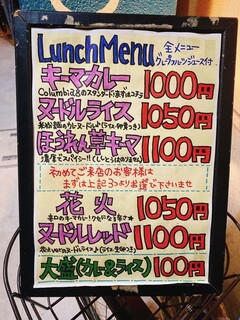 Lunch Menu 全メニュー
グレープフルーツジュース付
キーマカレー 1000円
Columbia8のスタンダード！まずはコチラ
ヌードルライス 1050円
ほうれん草キーマ 1100円
濃厚でスパイシー!!
初めてご来店のお客様は
まずは上記3つよりお選び下さいませ
花火 1050円
辛口のキーマカレー！クセになる辛さ
ヌードルレッド 1100円
大盛(カレー&ライス) 100円